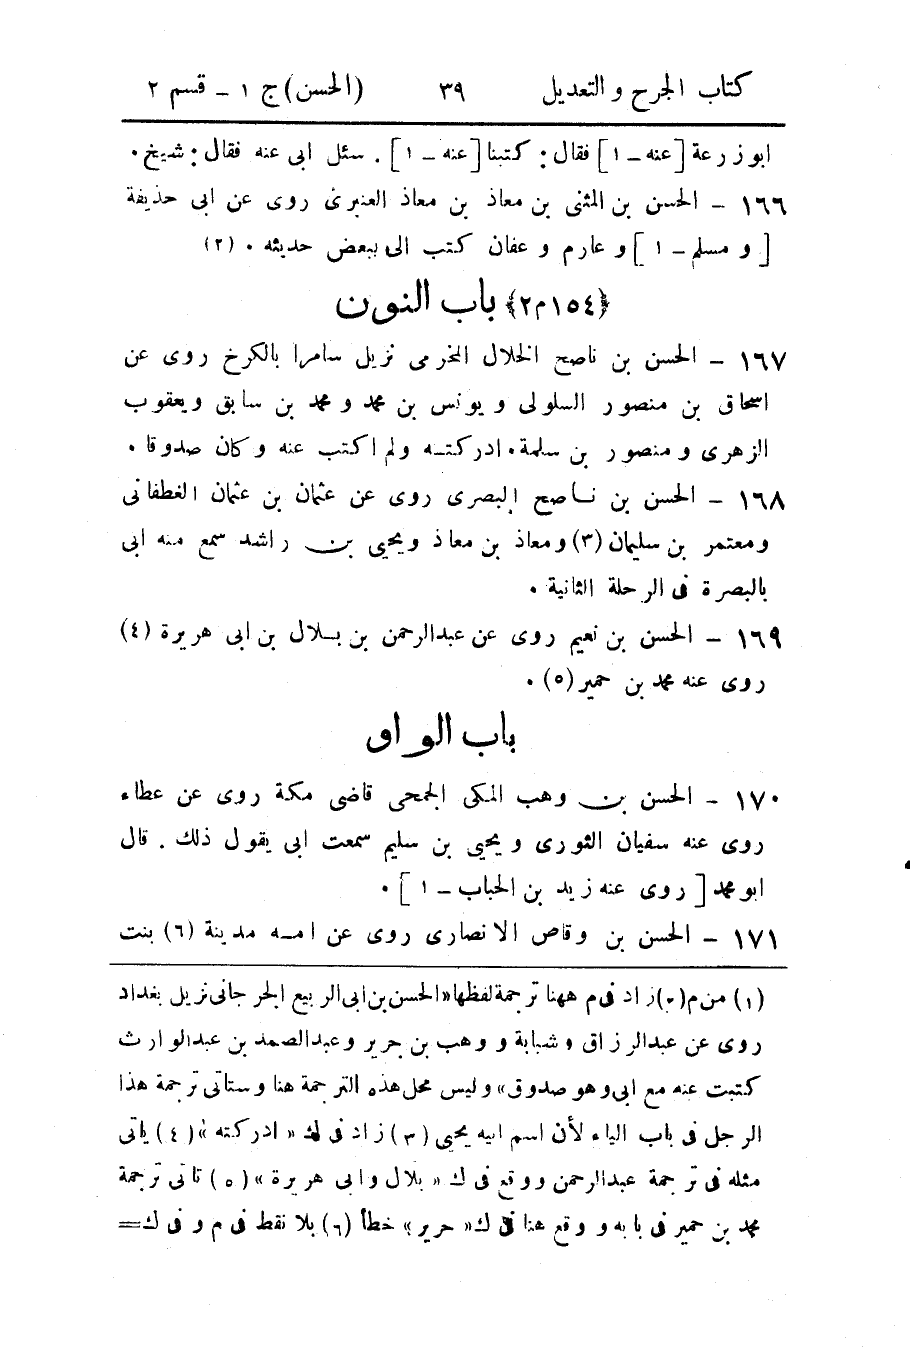 كتاب الجرح والتعديل ٣٩ (الحسن) ج ١ - قسم ٢
ابو زرعة [عنه - ١] فقال: كتبنا [عنه - ١]. سئل ابى عنه فقال: شيخ.
١٦٦ - الحسن بن المثنى بن معاذ بن معاذ العنبرى روى عن ابى حذيفة
[و مسلم - ١] و عارم و عفان كتب الى ببعض حديثه. (٢)
﴿١٥٤م٢﴾ باب النون
١٦٧ - الحسن بن ناصح الخلال المخرمى نزيل سامرا بالكرخ روى عن
اسحاق بن منصور السلولى و يونس بن محمد و محمد بن سابق ويعقوب
الزهرى و منصور بن سلمة. ادركته ولم اكتب عنه وكان صدوقا.
١٦٨ - الحسن بن ناصح البصرى روى عن عثمان بن عثمان الغطفانى
ومعتمر بن سليمان (٣) ومعاذ بن معاذ ويحيى بن راشد سمع منه ابى
بالبصرة فى الرحلة الثانية.
١٦٩ - الحسن بن نعيم روى عن عبدالرحمن بن بلال بن ابى هريرة (٤)
روى عنه محمد بن حمير (٥).
باب الواو
١٧٠ - الحسن بن وهب المكى الجمحى قاضى مكة روى عن عطاء
روى عنه سفيان الثورى و يحيى بن سليم سمعت ابى يقول ذلك. قال
ابو محمد [روى عنه زيد بن الحباب - ١].
١٧١ - الحسن بن وقاص الانصارى روى عن امه مدينة (٦) بنت
(١) من م (٢) زاد فى م ههنا ترجمة لفظها «الحسن بن ابى الربيع الجرجانى نزيل بغداد
روى عن عبدالرزاق و شبابة و وهب بن جرير وعبدالصمد بن عبدالوارث
كتبت عنه مع ابى وهو صدوق» وليس محل هذه الترجمة هنا وستاتى ترجمة هذا
الرجل فى باب الياء لأن اسم ابيه يحيى (٣) زاد فى ك «ادركته» (٤) ياتى
مثله فى ترجمة عبدالرحمن ووقع فى ك «بلال وابى هريرة» (٥) تاتى ترجمة
محمد بن حمير فى بابه و وقع هنا فى ك «حرير» خطأ (٦) بلا نقط فى م و فى ك=